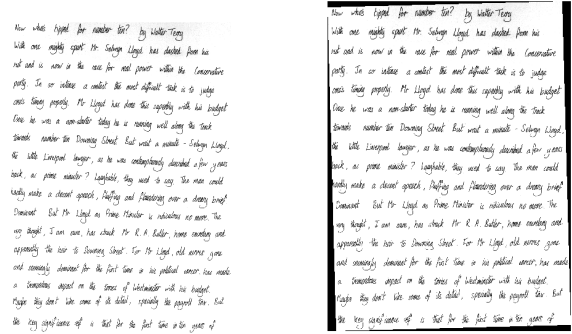 Now who's tipped for number ten? by Walter Terry
With one mighty spurt Mr Selwyn Lloyd has dashed from his
rut and is now in the race for real power within the Conservative
party. In so intense a contest the most difficult task is to judge
one's timing properly. Mr Lloyd has done this capably with his budget
Once he was a non-starter today he is running well along the track
towards number ten Downing Street But wait a minute - Selwyn Lloyd,
the little Liverpool lawyer, as he was contemptuously described a few years
back, as prime minister? Laughable, they used to say The man could
hardly make a decent speech, fluffing and floundering over a dreary brief
Dominant But Mr Lloyd as Prime Minister is ridiculous no more The
very thought, I am sure, has struck Mr R. A. Butler, home secretary and
apparently the heir to Downing Street. For Mr Lloyd, old nerves gone
and seemingly dominant for the first time in his political career, has made
a tremendous impact on the tories of Westminster with his budget.
Maybe they don't like some of its detail, specially the payroll tax. But
the key significance of is that for the first time in ten years of
Now who's tipped for number ten? by Walter Terry
With one mighty spurt Mr Selwyn Lloyd has dashed from his
rut and is now in the race for real power within the Conservative
party. In so intense a contest the most difficult task is to judge
one's timing properly. Mr Lloyd has done this capably with his budget
Once he was a non-starter today he is running well along the track
towards number ten Downing Street But wait a minute - Selwyn Lloyd,
the little Liverpool lawyer, as he was contemptuously described a few years
back, as prime minister? Laughable, they used to say The man could
hardly make a decent speech, fluffing and floundering over a dreary brief
Dominant But Mr Lloyd as Prime Minister is ridiculous no more The
very thought, I am sure, has struck Mr R. A. Butler, home secretary and
apparently the heir to Downing Street. For Mr Lloyd, old nerves gone
and seemingly dominant for the first time in his political career, has made
a tremendous impact on the tories of Westminster with his budget.
Maybe they don't like some of its detail, specially the payroll tax. But
the key significance of is that for the first time in ten years of